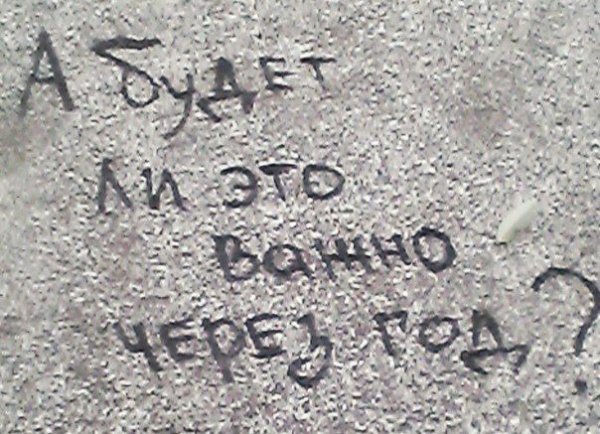 А будет
ли это
важно
через год?